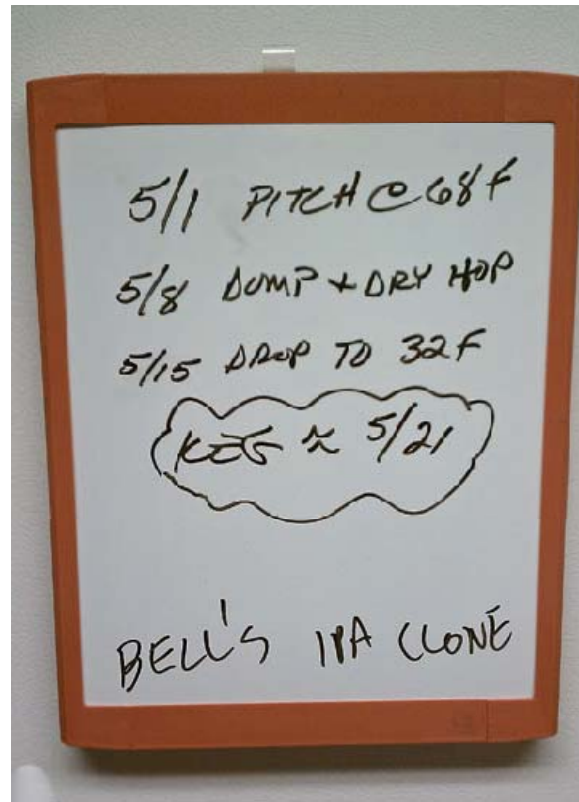 5/1 PITCH @ 68F
5/8 DUMP + DRY HOP
5/15 DROP TO 32F
KEG ≈ 5/21
BELL'S IPA CLONE